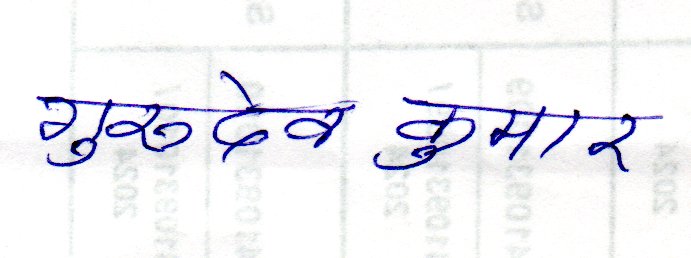 गुरुदेव कुमार